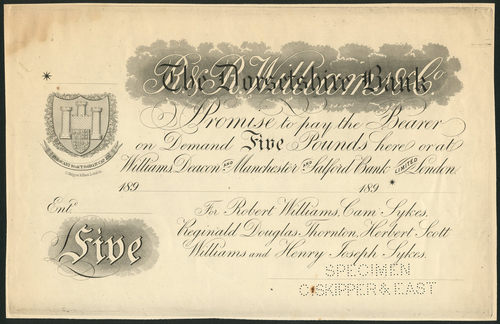 The Dorsetshire Bank
R. R. Williams & Co
I Promise to pay the Bearer
on Demand Five Pounds here or at
Williams Deacon and Manchester and Salford Bank Limited London
189 189
Ent.
For Robert Williams, Cam Sykes,
Reginald Douglas Thornton, Herbert Scott
Williams and Henry Joseph Sykes.
Five
SPECIMEN
C. SKIPPER & EAST